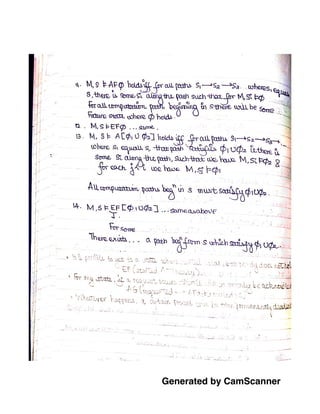 11. M, S ⊨ AFΦ holds iff for all paths S1→S2→S3... where S1 equals
S, there is some Si along the path such that for M, Si ⊨ Φ
For all computation path beginning in S there will be some
Future state where Φ holds
12. M, S ⊨ EFΦ ... same.
13. M, S ⊨ A[Φ1 U Φ2] holds iff for all paths S1→S2→S3→...
where S1 equals S, that path satisfies Φ1 U Φ2 i.e there is
some Si along the path, such that we have M, Si ⊨ Φ2 &
for each j<i we have M, Sj ⊨ Φ1
All computation paths begⁿ in S must satisfy Φ1 U Φ2.
14. M, S ⊨ EF[Φ1 U Φ2] ... same as above
For some
There exists ... a path beg from S which satisfy Φ1 U Φ2.
It is possible to get to a state where
For any state, if a request
AG(requested
Whatever happens, a certain
Generated by CamScanner